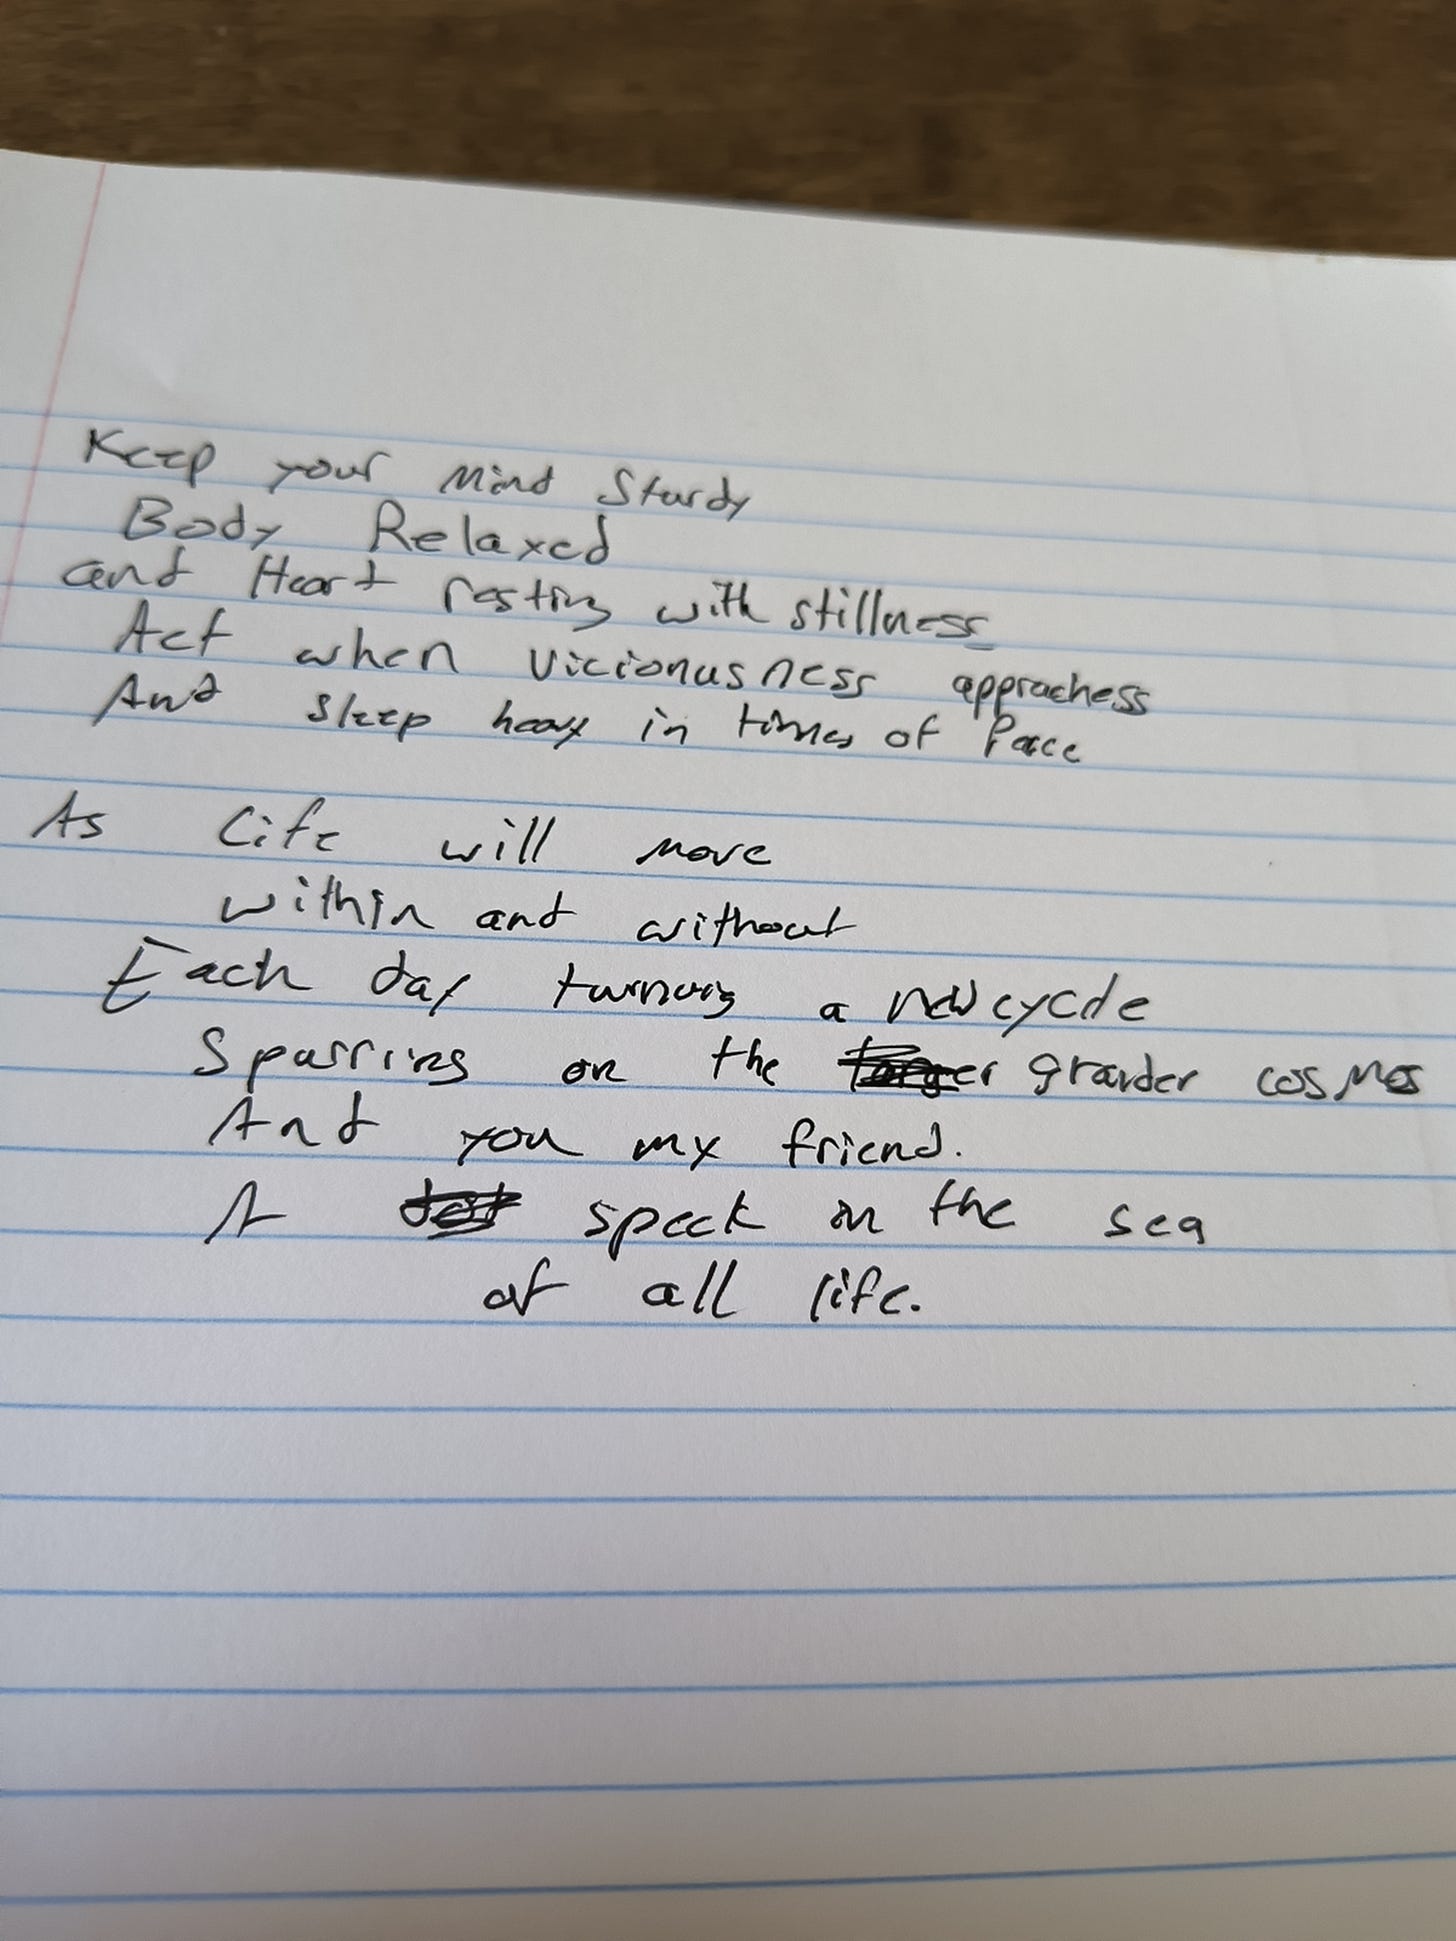 Keep your Mind Sturdy
Body Relaxed
and Heart resting with stillness
Act when vicionusness approachess
And sleep heavy in times of Peace
As Life will move
within and without
Each day turning a new cycle
Spurring on the larger grander cosmos
And you my friend.
A dot speck in the sea
of all life.